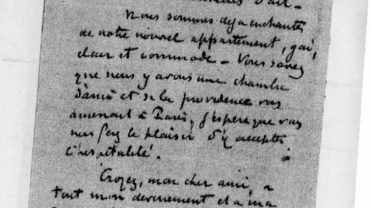 Nous sommes déjà enchantés
de notre nouvel appartement, gai,
clair et commode - Vous savez
que nous y avons une chambre
d'ami et si la providence vous
amenait à Paris, j'espère que vous
nous ferez le plaisir d'y accepter
l'hospitalité.
Croyez, mon cher ami, à
tout mon dévouement et à ma